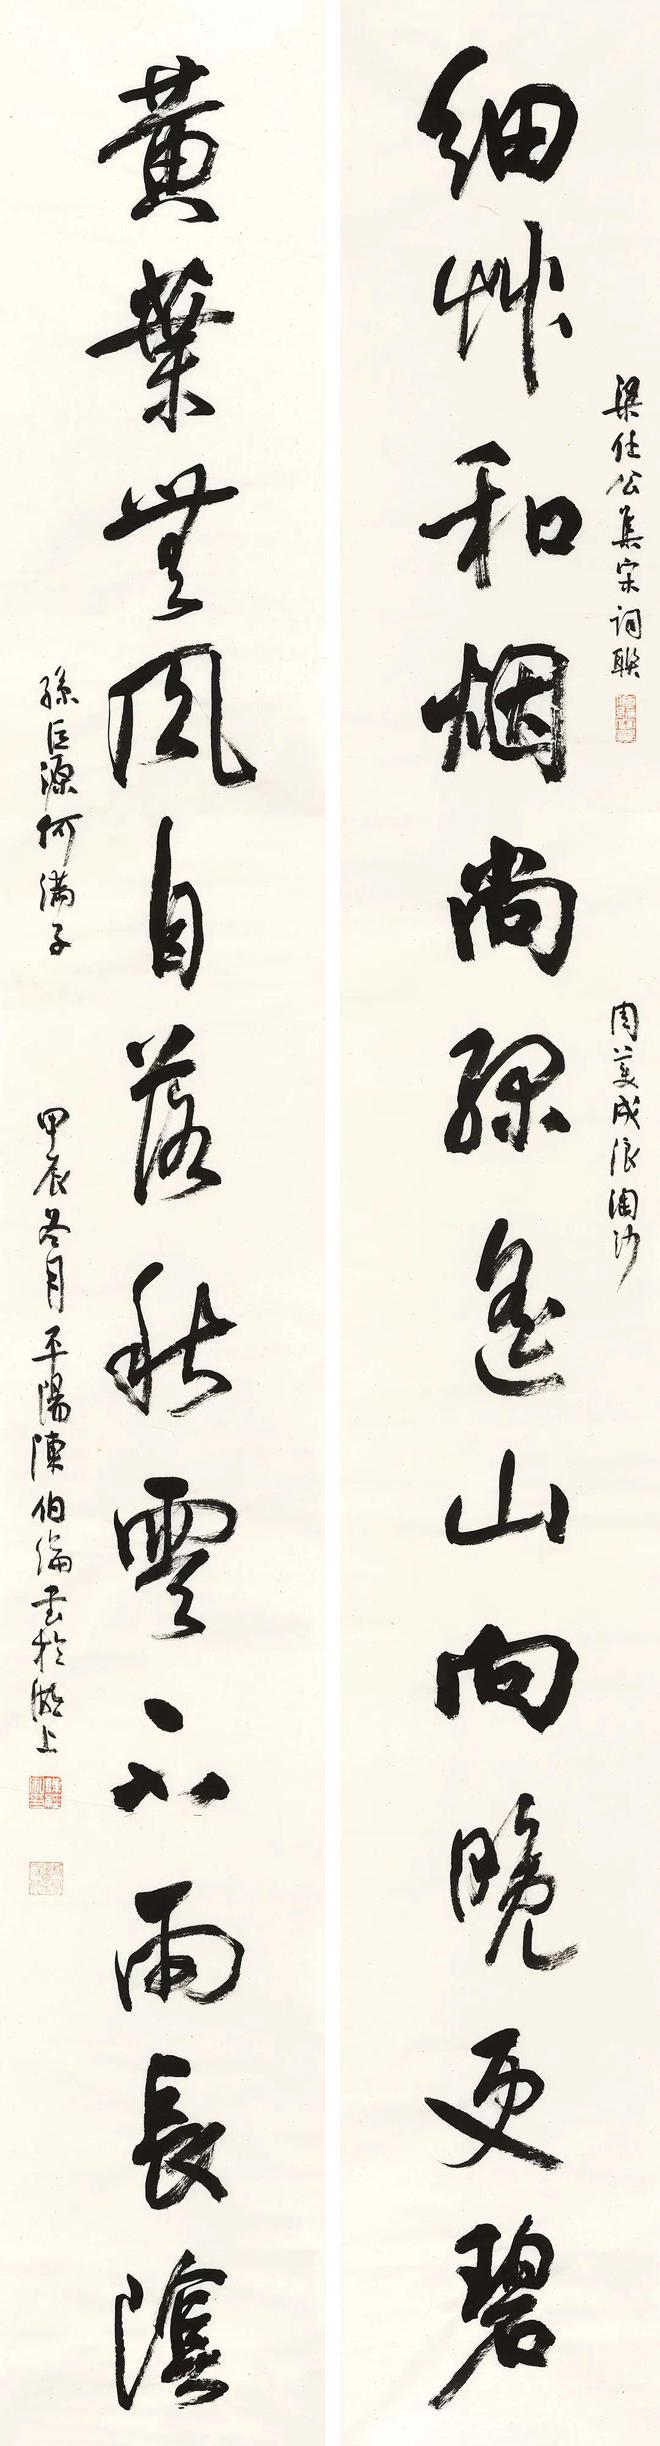 梁任公集宋词联
细草和烟尚绿遥山向晚更碧
周美成浪淘沙
黄葉無風自落秋雲不雨長陰
孫巨源何满子
甲辰冬月平陽陳伯倫書於湖上